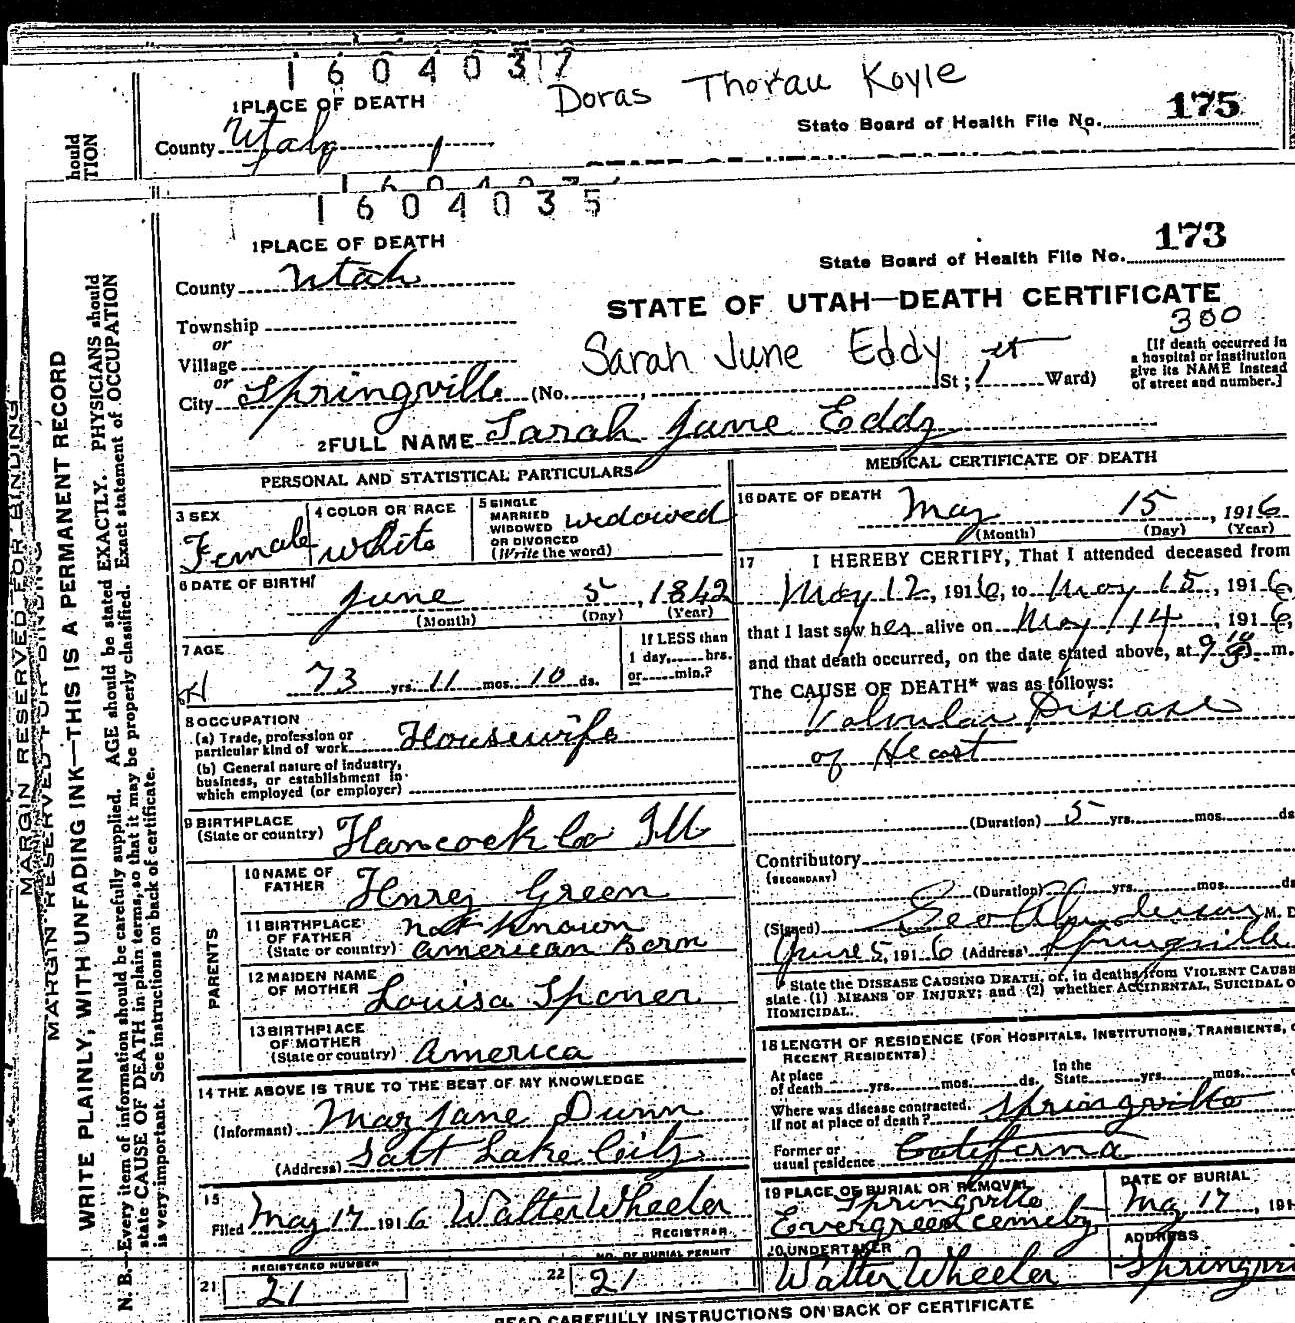 1604037
Doras Thorau Koyle
1 PLACE OF DEATH
State Board of Health File No. 175
County Utah
hould
TION
1604035
1 PLACE OF DEATH
State Board of Health File No. 173
County Utah
STATE OF UTAH—DEATH CERTIFICATE
300
Township
or
Village
or
Sarah June Eddy
[If death occurred in
a hospital or institution
give its NAME instead
of street and number.]
City Springville (No. , St; 1 Ward)
2 FULL NAME Sarah June Eddy
PERSONAL AND STATISTICAL PARTICULARS
3 SEX
Female
4 COLOR OR RACE
white
5 SINGLE
MARRIED
WIDOWED
OR DIVORCED
(Write the word)
widowed
6 DATE OF BIRTH
June 5, 1842
(Month) (Day) (Year)
7 AGE
73 yrs. 11 mos. 10 ds.
If LESS than
1 day, hrs.
or min.?
8 OCCUPATION
(a) Trade, profession or
particular kind of work Housewife
(b) General nature of industry,
business, or establishment in
which employed (or employer)
9 BIRTHPLACE
(State or country) Hancock Co Ill
PARENTS
10 NAME OF
FATHER Henry Green
11 BIRTHPLACE
OF FATHER
(State or country)
not known
american Born
12 MAIDEN NAME
OF MOTHER Louisa Sponer
13 BIRTHPLACE
OF MOTHER
(State or country) America
14 THE ABOVE IS TRUE TO THE BEST OF MY KNOWLEDGE
(Informant) May Jane Dunn
(Address) Salt Lake City
15
Filed May 17 1916 Walter Wheeler
REGISTRAR
REGISTERED NUMBER
21 21
NO. OF BURIAL PERMIT
22 21
MEDICAL CERTIFICATE OF DEATH
16 DATE OF DEATH
May 15, 1916
(Month) (Day) (Year)
17 I HEREBY CERTIFY, That I attended deceased from
May 12, 1916, to May 15, 1916,
that I last saw her alive on May 14, 1916,
and that death occurred, on the date stated above, at 9 m.
The CAUSE OF DEATH* was as follows:
Valvular Disease
of Heart
(Duration) 5 yrs. mos. ds
Contributory
(SECONDARY)
(Duration) yrs. mos. ds
(Signed) Geo Anderson M. D
June 5, 1916 (Address) Springville
* State the DISEASE CAUSING DEATH, or, in deaths from VIOLENT CAUSE
state (1) MEANS OF INJURY; and (2) whether ACCIDENTAL, SUICIDAL O
HOMICIDAL.
18 LENGTH OF RESIDENCE (FOR HOSPITALS, INSTITUTIONS, TRANSIENTS, O
RECENT RESIDENTS)
At place
of death yrs. mos. ds.
In the
State yrs. mos.
Where was disease contracted,
If not at place of death? Springville
Former or
usual residence California
19 PLACE OF BURIAL OR REMOVAL
Springville
Evergreen cemety
DATE OF BURIAL
May 17, 191
20 UNDERTAKER
Walter Wheeler
ADDRESS
Springvi
READ CAREFULLY INSTRUCTIONS ON BACK OF CERTIFICATE
MARGIN RESERVED FOR BINDING
MARGIN RESERVED FOR BINDING
WRITE PLAINLY, WITH UNFADING INK—THIS IS A PERMANENT RECORD
N. B.—Every item of information should be carefully supplied. AGE should be stated EXACTLY. PHYSICIANS should
state CAUSE OF DEATH in plain terms, so that it may be properly classified. Exact statement of OCCUPATION
is very important. See instructions on back of certificate.